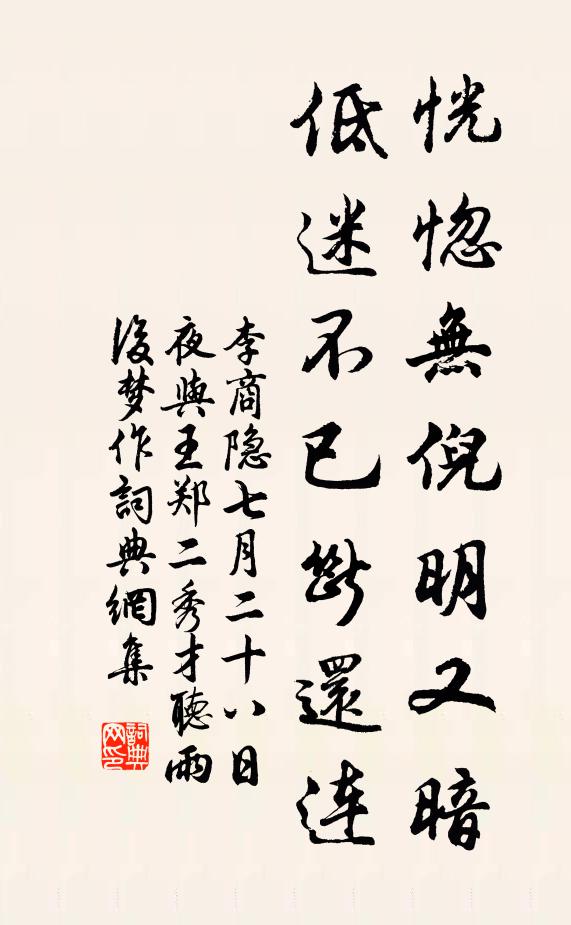 恍惚無倪明又暗
低迷不已斷還連
李商隐七月二十八日
夜與王郑二秀才聽雨
後梦作詞典網集
詞典網印